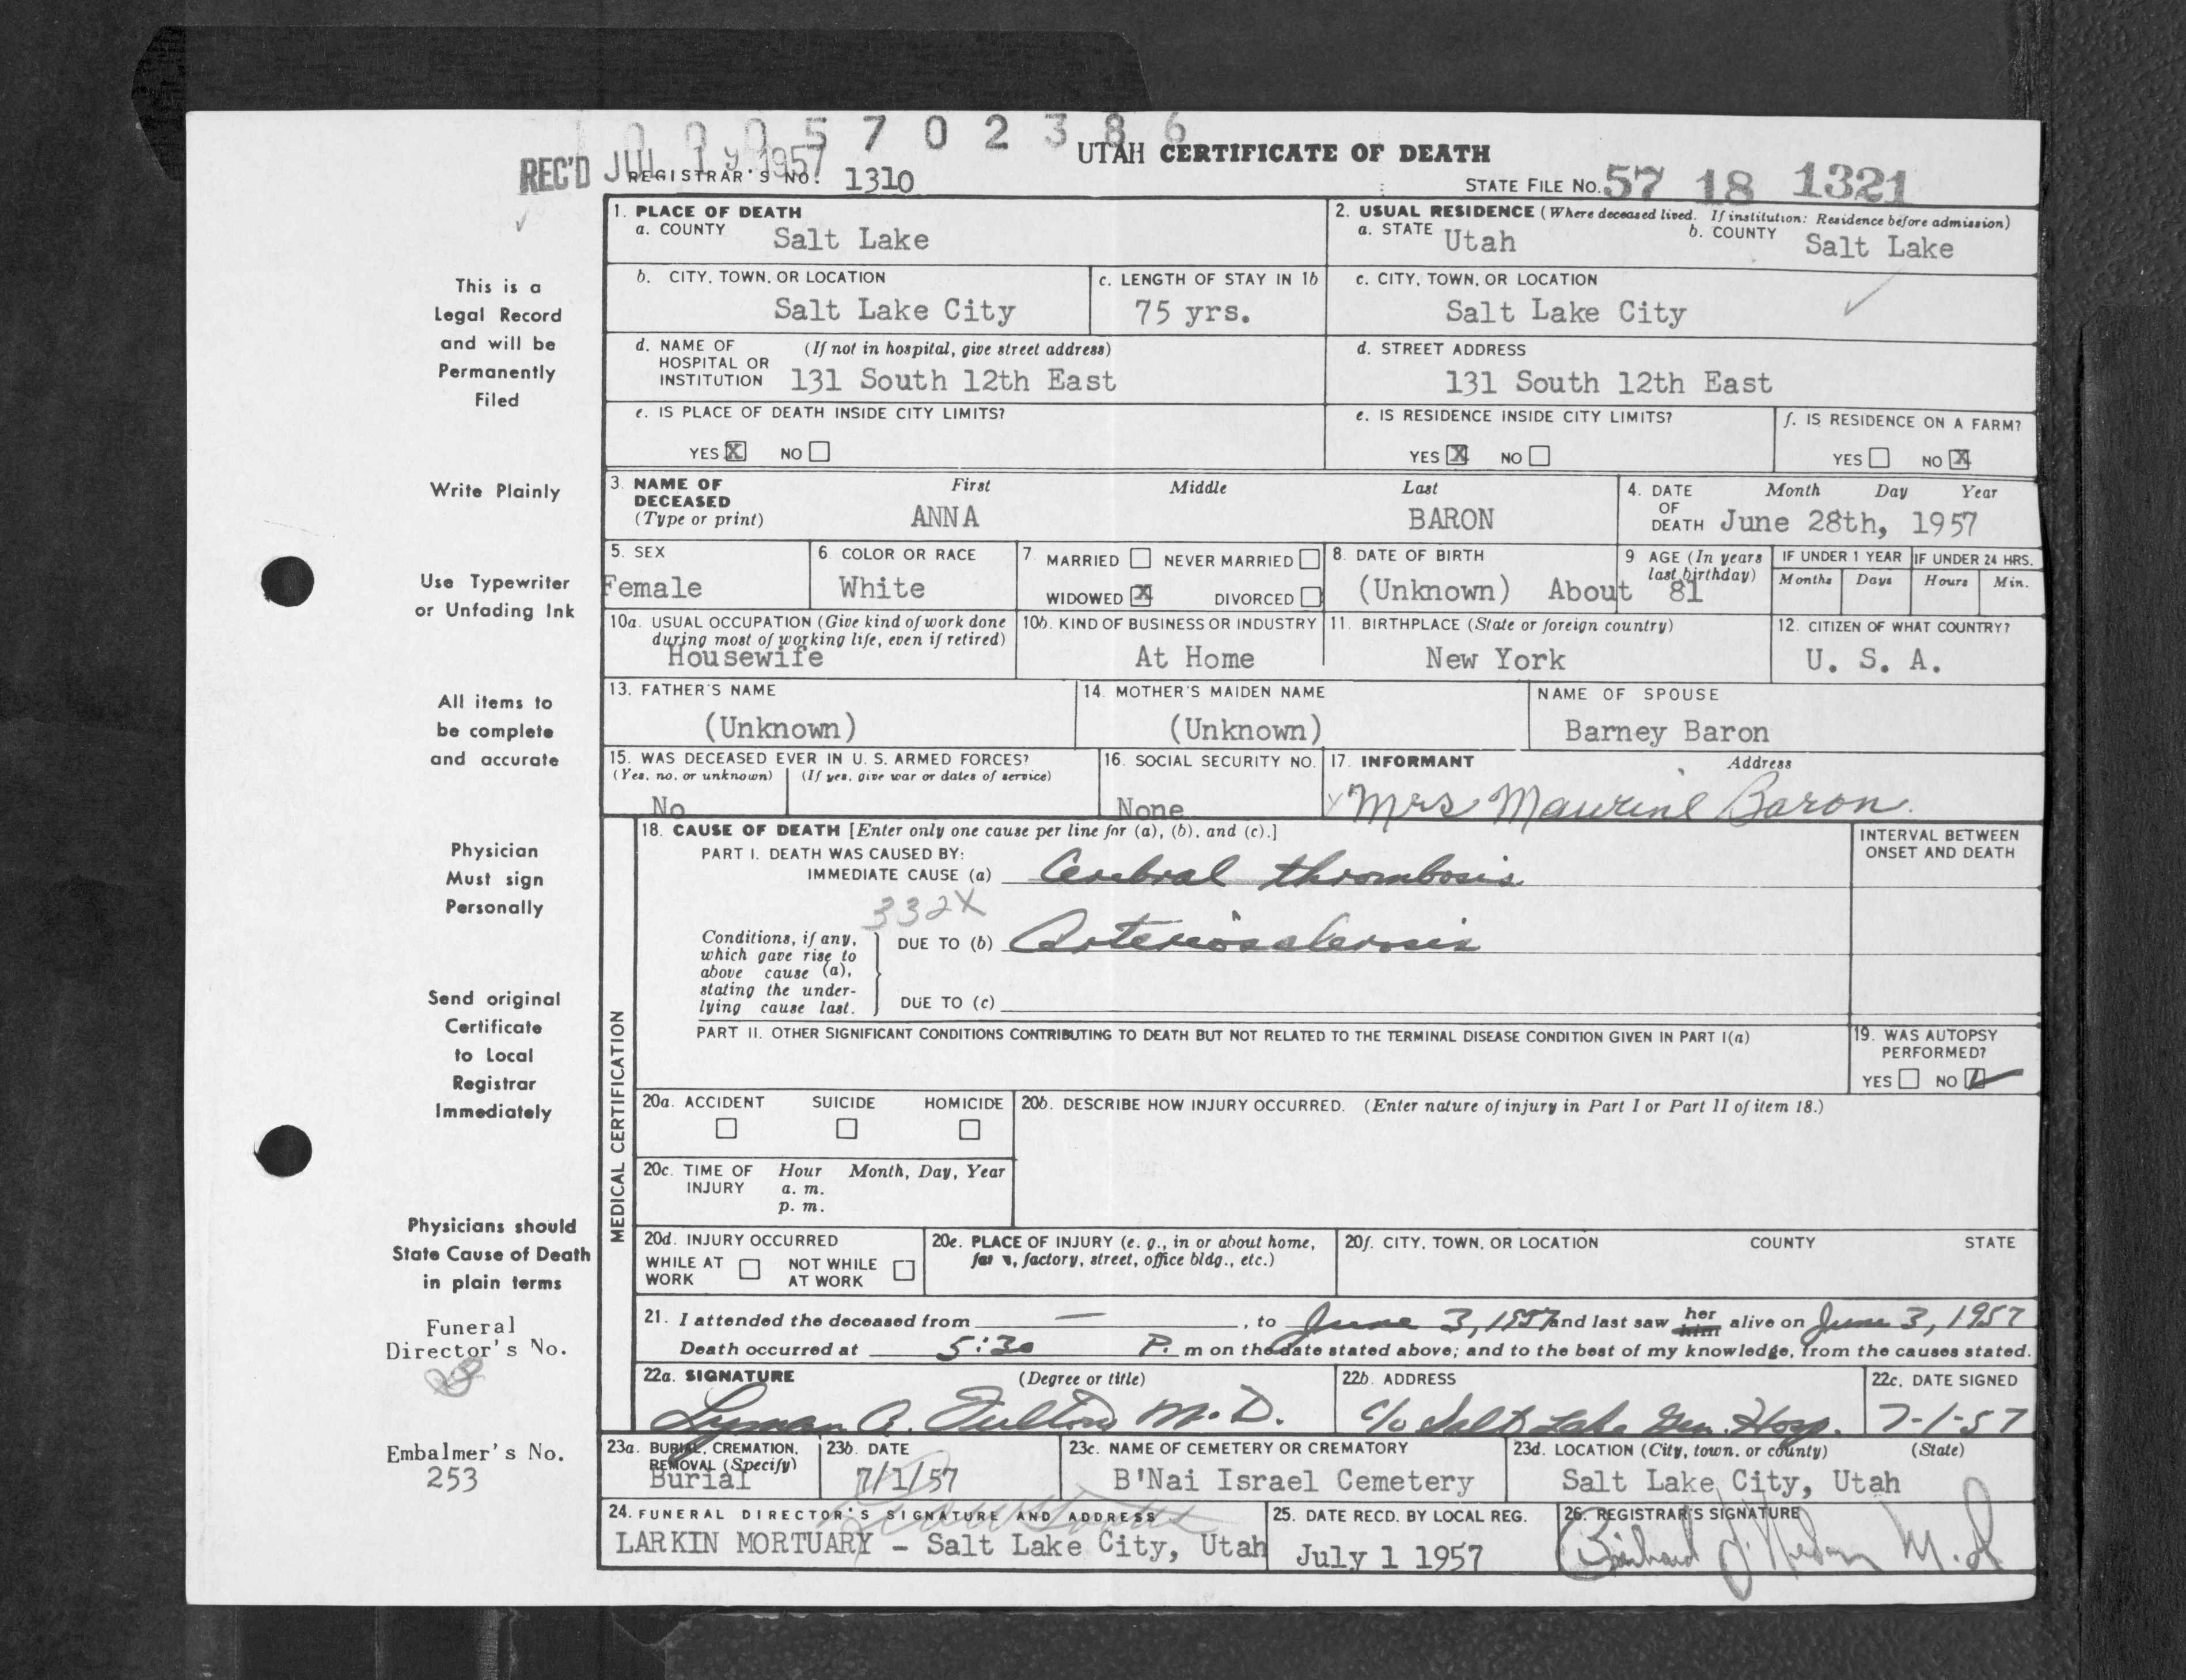 1 0 0 0 5 7 0 2 3 8 6
UTAH CERTIFICATE OF DEATH
REC'D JUL 19 1957
REGISTRAR'S NO. 1310
STATE FILE NO. 57 18 1321
1. PLACE OF DEATH
a. COUNTY Salt Lake
2. USUAL RESIDENCE (Where deceased lived. If institution: Residence before admission)
a. STATE Utah b. COUNTY Salt Lake
b. CITY, TOWN, OR LOCATION
Salt Lake City
c. LENGTH OF STAY IN 1b
75 yrs.
c. CITY, TOWN, OR LOCATION
Salt Lake City
d. NAME OF (If not in hospital, give street address)
HOSPITAL OR
INSTITUTION 131 South 12th East
d. STREET ADDRESS
131 South 12th East
e. IS PLACE OF DEATH INSIDE CITY LIMITS?
YES X NO
e. IS RESIDENCE INSIDE CITY LIMITS?
YES X NO
f. IS RESIDENCE ON A FARM?
YES NO X
3. NAME OF DECEASED
(Type or print)
First Middle Last
ANNA BARON
4. DATE OF DEATH
Month Day Year
June 28th, 1957
5. SEX
Female
6. COLOR OR RACE
White
7. MARRIED NEVER MARRIED
WIDOWED X DIVORCED
8. DATE OF BIRTH
(Unknown)
9 AGE (In years
last birthday)
About 81
IF UNDER 1 YEAR
Months Days
IF UNDER 24 HRS.
Hours Min.
10a. USUAL OCCUPATION (Give kind of work done
during most of working life, even if retired)
Housewife
10b. KIND OF BUSINESS OR INDUSTRY
At Home
11. BIRTHPLACE (State or foreign country)
New York
12. CITIZEN OF WHAT COUNTRY?
U. S. A.
13. FATHER'S NAME
(Unknown)
14. MOTHER'S MAIDEN NAME
(Unknown)
NAME OF SPOUSE
Barney Baron
15. WAS DECEASED EVER IN U. S. ARMED FORCES?
(Yes, no, or unknown) (If yes, give war or dates of service)
No
16. SOCIAL SECURITY NO.
None
17. INFORMANT Address
x Mrs Maurine Baron.
MEDICAL CERTIFICATION
18. CAUSE OF DEATH [Enter only one cause per line for (a), (b), and (c).]
PART I. DEATH WAS CAUSED BY:
IMMEDIATE CAUSE (a) Cerebral thrombosis
332X
Conditions, if any,
which gave rise to
above cause (a),
stating the under-
lying cause last.
DUE TO (b) Arteriosclerosis
DUE TO (c)
INTERVAL BETWEEN
ONSET AND DEATH
PART II. OTHER SIGNIFICANT CONDITIONS CONTRIBUTING TO DEATH BUT NOT RELATED TO THE TERMINAL DISEASE CONDITION GIVEN IN PART I(a)
19. WAS AUTOPSY
PERFORMED?
YES NO
20a. ACCIDENT SUICIDE HOMICIDE
20b. DESCRIBE HOW INJURY OCCURRED. (Enter nature of injury in Part I or Part II of item 18.)
20c. TIME OF INJURY
Hour Month, Day, Year
a. m.
p. m.
20d. INJURY OCCURRED
WHILE AT WORK NOT WHILE AT WORK
20e. PLACE OF INJURY (e. g., in or about home,
farm, factory, street, office bldg., etc.)
20f. CITY, TOWN, OR LOCATION COUNTY STATE
21. I attended the deceased from — , to June 3, 1957 and last saw her him alive on June 3, 1957
Death occurred at 5:30 P. m on the date stated above; and to the best of my knowledge, from the causes stated.
22a. SIGNATURE (Degree or title)
Lyman A. Fulton M.D.
22b. ADDRESS
c/o Salt Lake Gen. Hosp.
22c. DATE SIGNED
7-1-57
23a. BURIAL, CREMATION,
REMOVAL (Specify)
Burial
23b. DATE
7/1/57
23c. NAME OF CEMETERY OR CREMATORY
B'Nai Israel Cemetery
23d. LOCATION (City, town, or county) (State)
Salt Lake City, Utah
24. FUNERAL DIRECTOR'S SIGNATURE AND ADDRESS
LARKIN MORTUARY - Salt Lake City, Utah
25. DATE RECD. BY LOCAL REG.
July 1 1957
26. REGISTRAR'S SIGNATURE
M.D.
This is a
Legal Record
and will be
Permanently
Filed
Write Plainly
Use Typewriter
or Unfading Ink
All items to
be complete
and accurate
Physician
Must sign
Personally
Send original
Certificate
to Local
Registrar
Immediately
Physicians should
State Cause of Death
in plain terms
Funeral
Director's No.
Embalmer's No.
253